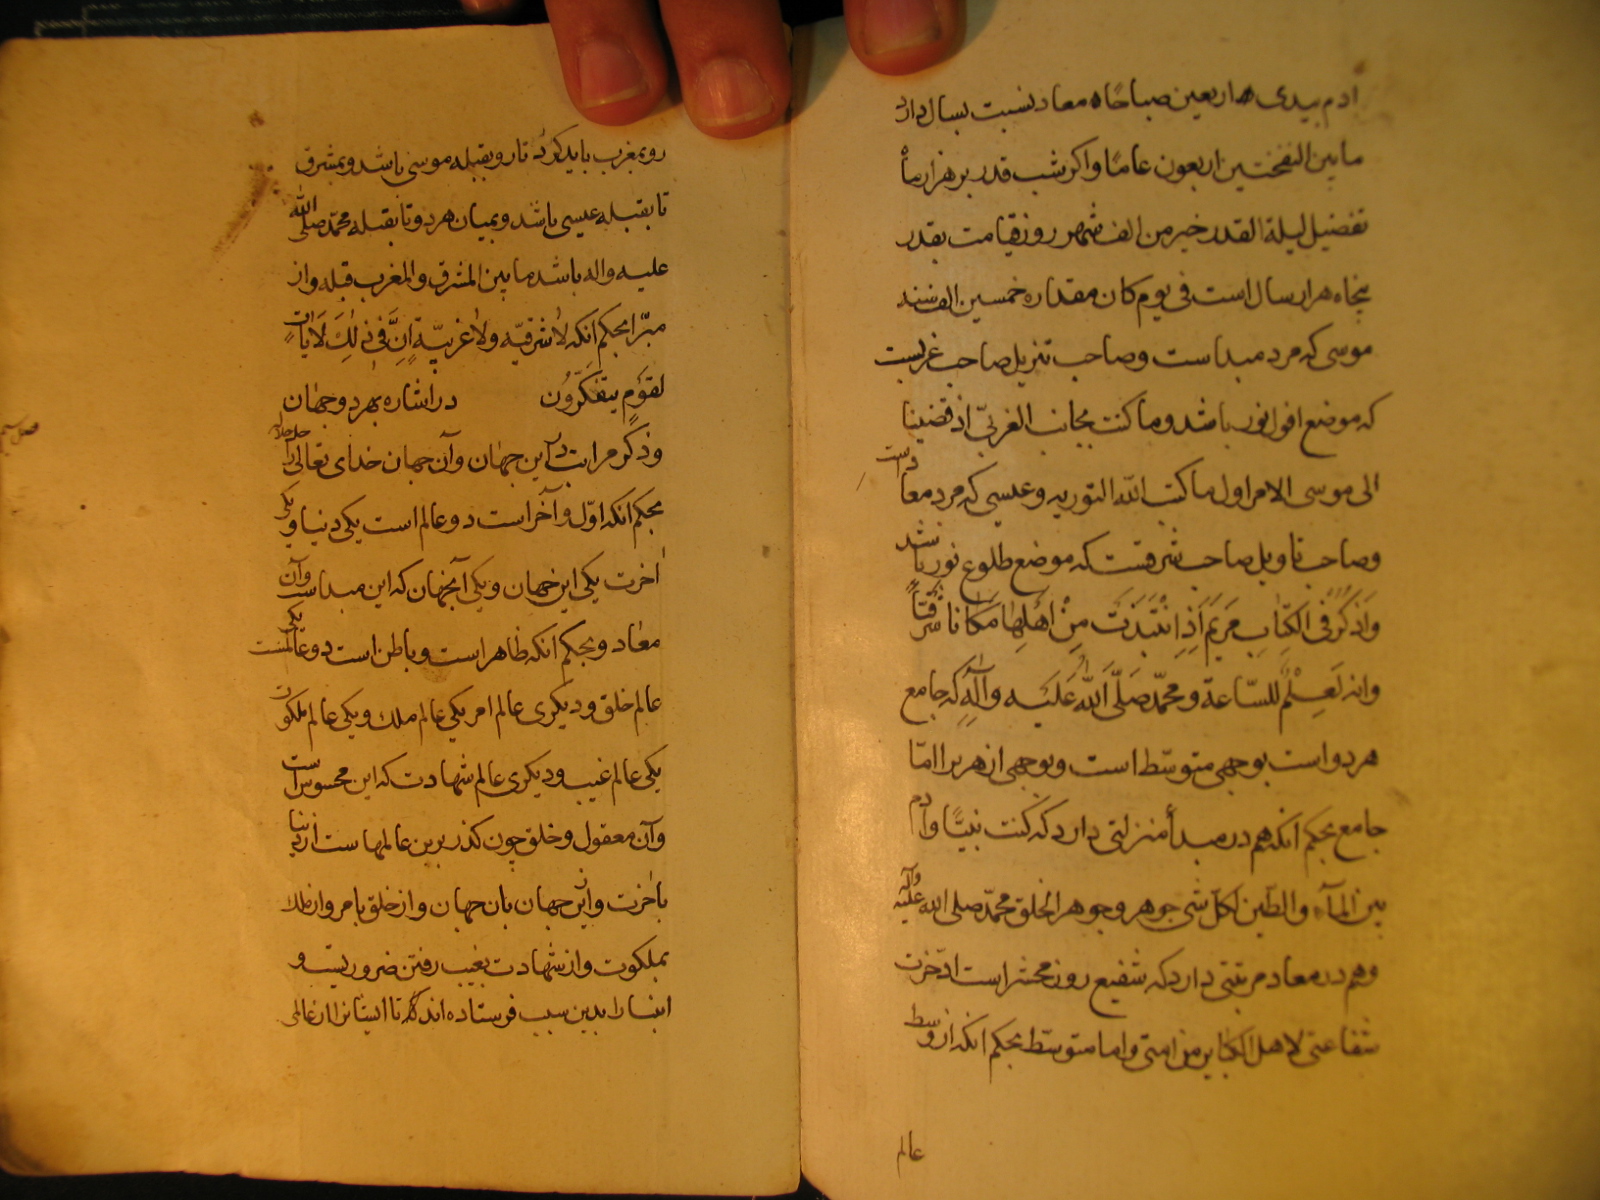 ادم بیدی اربعین صباحًا معاد نسبت بسال دارد
ما بین النفختین اربعون عامًا واکر شب قدر بر هزار ماه
تفضیل لیلة القدر خیر من الف شهر روز قیامت بقدر
پنجاه هزار سال است فی یوم کان مقداره خمسین الف سنه
موسی که مرد مبداست وصاحب تنزیل صاحب غربست
که موضع افول نور باشد وما کنت بجانب الغربیّ اذ قضینا
الی موسی الامر اول ما کتب الله التوریه وعیسی که مرد معادست
وصاحب تاویل صاحب شرقست که موضع طلوع نور باشد
وَاذْکُرْ فی الکِتَابِ مَریَمَ اِذِ انْتَبَذَتْ مِنْ اَهْلِهٰا مَکٰانا شَرْقیّاً
وانه لَعِلْمٌ للسّاعة ومحمّد صَلّی اللّٰه عَلَیه وآلِهِ که جامع
هر دو است بوجهی متوسّط است وبوجهی از هر دو مبرا امّا
جامع بحکم انکه هم در مبدأ منزلتی دارد که کنت نبیًّا وآدم
بین المآء والطّین لکلّ شیٔ جوهر وجوهر الخلق محمّد صلی الله علیه وآله
وهم در معاد مرتبتی دارد که شفیع روز محشر است ادّخرت
شفاعتی لاهل الکبایر من امتی واما متوسّط بحکم انکه از وسط
عالم
رو بمغرب باید کرد تا رو بقبله موسی باشد وبمشرق
تا بقبله عیسی باشد وبمیان هر دو تا بقبله محمّد صلی الله
علیه واله باشد ما بین المشرق والمغرب قبله واز
مبّرا بحکم انکه لا شرقیّه ولا غربیّة اِنَّ فی ذٰلِكَ لَاٰیاتٍ
لقوْمٍ یتفکّرُون در اشاره بهر دو جهان
وذکر مراتب در این جهان وآن جهان خدای تعالی را جل جلاله
بحکم آنکه اوّل وآخر است دو عالم است یکی دنیا ویکی
اخرت یکی این جهان ویکی آنجهان که این مبداست وآن
معاد وبحکم انکه ظاهر است وباطن است دو عالمست یکی
عالم خلق ودیکری عالم امر یکی عالم ملك ویکی عالم ملکوت
یکی عالم غیب ودیکری عالم شهادت که این محسوس است
وآن معقول وخلق چون کذر برین عالمهاست از دنیا
باخرت واز این جهان بان جهان واز خلق بامر واز ملك
بملکوت واز شهادت بغیب رفتن ضروریست و
انبیا را بدین سبب فرستاده اند که تا ایشانرا از عالمی
فصل سیم